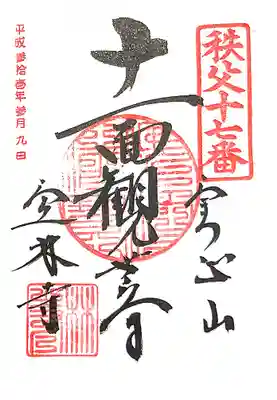 秩父十七番
実正山
十一面観世音
定林寺
平成参拾壱年参月九日